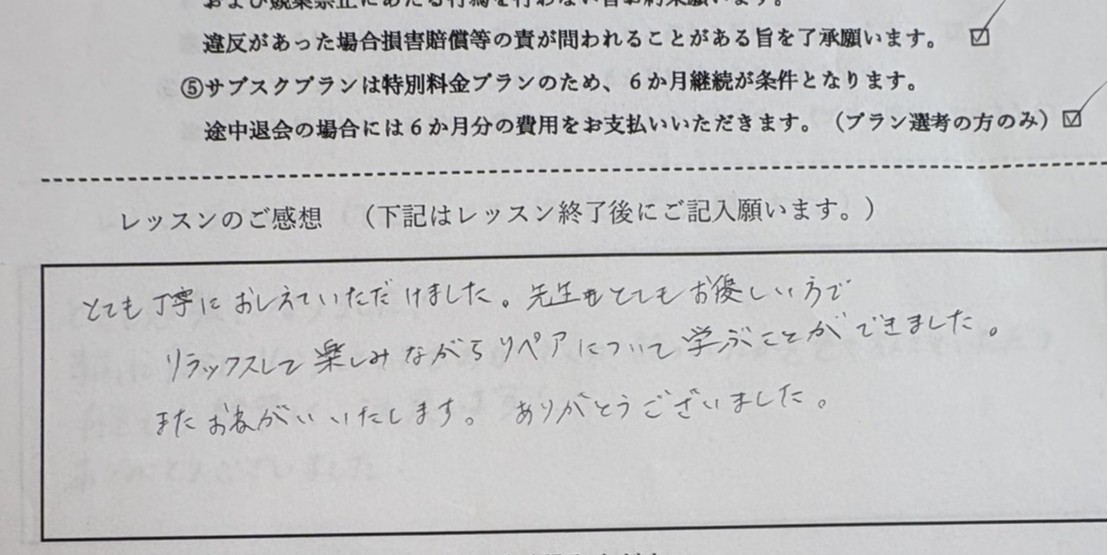 および競業禁止にあたる行為を行わない旨お約束願います。
違反があった場合損害賠償等の責が問われることがある旨を了承願います。 ☑
⑤サブスクプランは特別料金プランのため、6か月継続が条件となります。
途中退会の場合には6か月分の費用をお支払いいただきます。（プラン選考の方のみ）☑
レッスンのご感想　（下記はレッスン終了後にご記入願います。）
とても丁寧におしえていただけました。先生もとてもお優しい方で
リラックスして楽しみながらリペアについて学ぶことができました。
またおねがいいたします。 ありがとうございました。